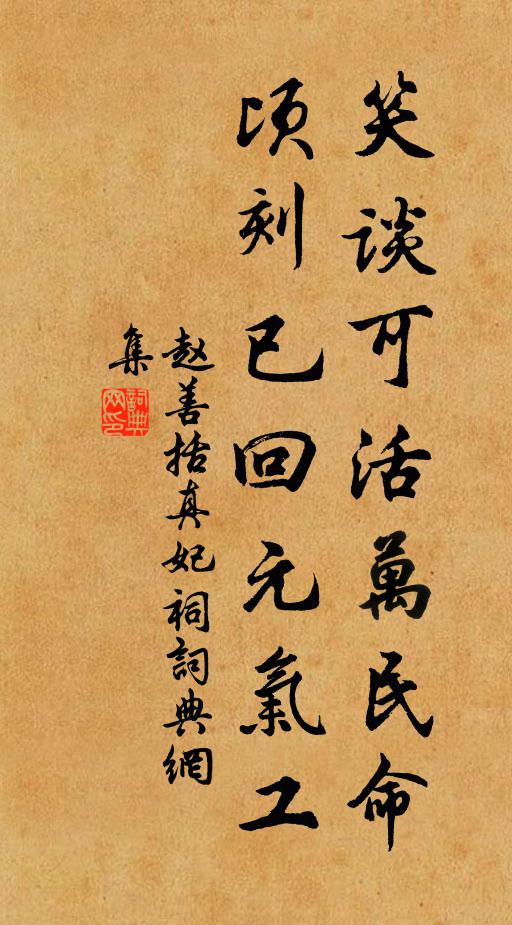 笑談可活萬民命
頃刻已回元氣工
赵善括真妃祠詞典網
集
詞典
网印